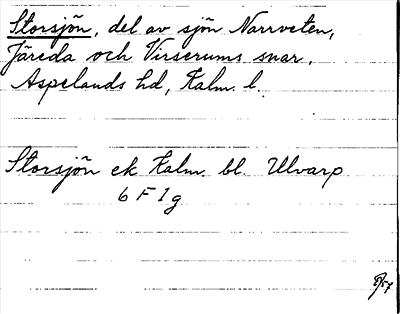 Storsjön, del av sjön Narrveten,
Järeda och Virserums snar,
Aspelands hd, Kalm. l.
Storsjön ek Kalm. bl. Ulvarp
6 F 1 g